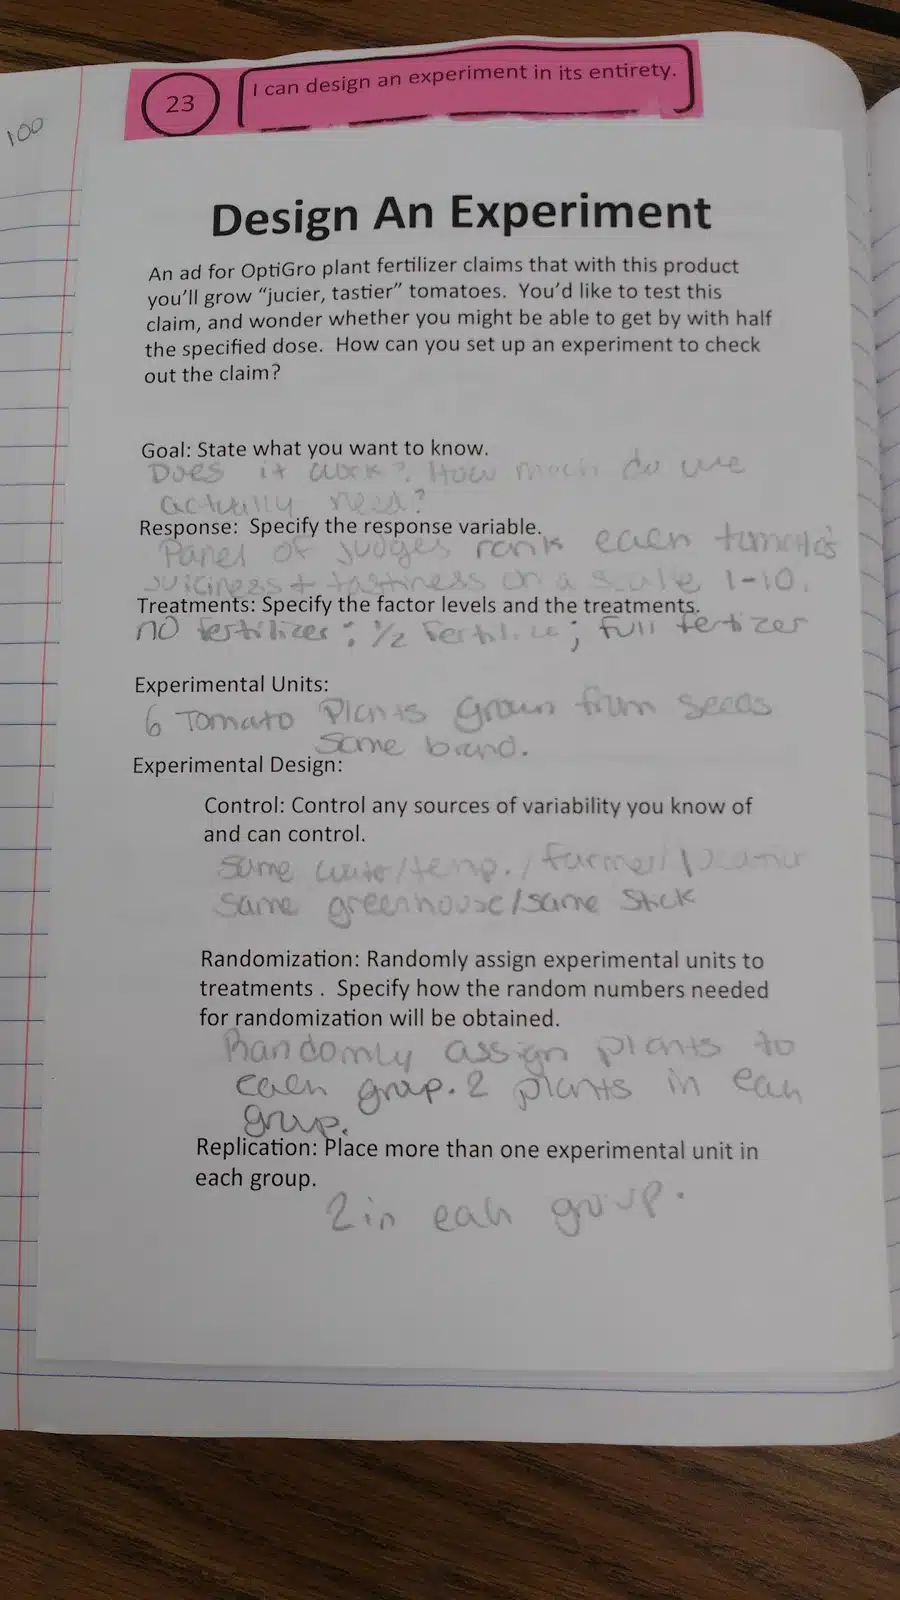 100
23
I can design an experiment in its entirety.
Design An Experiment
An ad for OptiGro plant fertilizer claims that with this product
you'll grow "jucier, tastier" tomatoes. You'd like to test this
claim, and wonder whether you might be able to get by with half
the specified dose. How can you set up an experiment to check
out the claim?
Goal: State what you want to know.
Does it work? How much do we
actually need?
Response: Specify the response variable.
Panel of judges rank each tomato's
juiciness + tastiness on a scale 1-10.
Treatments: Specify the factor levels and the treatments.
no fertilizer; 1/2 fertilize; full fertizer
Experimental Units:
6 Tomato Plants grown from seeds
Same brand.
Experimental Design:
Control: Control any sources of variability you know of
and can control.
Same water/temp./farmer/location
Same greenhouse/same stick
Randomization: Randomly assign experimental units to
treatments . Specify how the random numbers needed
for randomization will be obtained.
Randomly assign plants to
each group. 2 plants in each
group.
Replication: Place more than one experimental unit in
each group.
2 in each group.